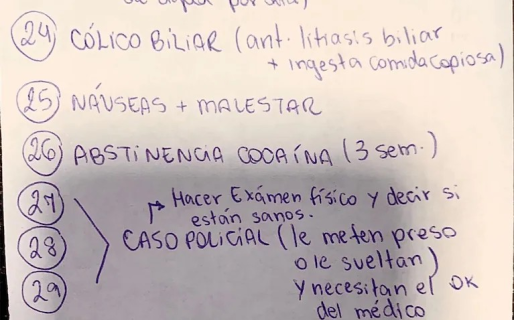 por día)
24 CÓLICO BILIAR (ant. litiasis biliar
+ ingesta comida copiosa)
25 NÁUSEAS + MALESTAR
26 ABSTINENCIA COCAÍNA (3 sem.)
27 → Hacer Exámen físico y decir si
están sanos.
28 CASO POLICIAL (le meten preso
o le sueltan)
29 y necesitan el OK
del médico